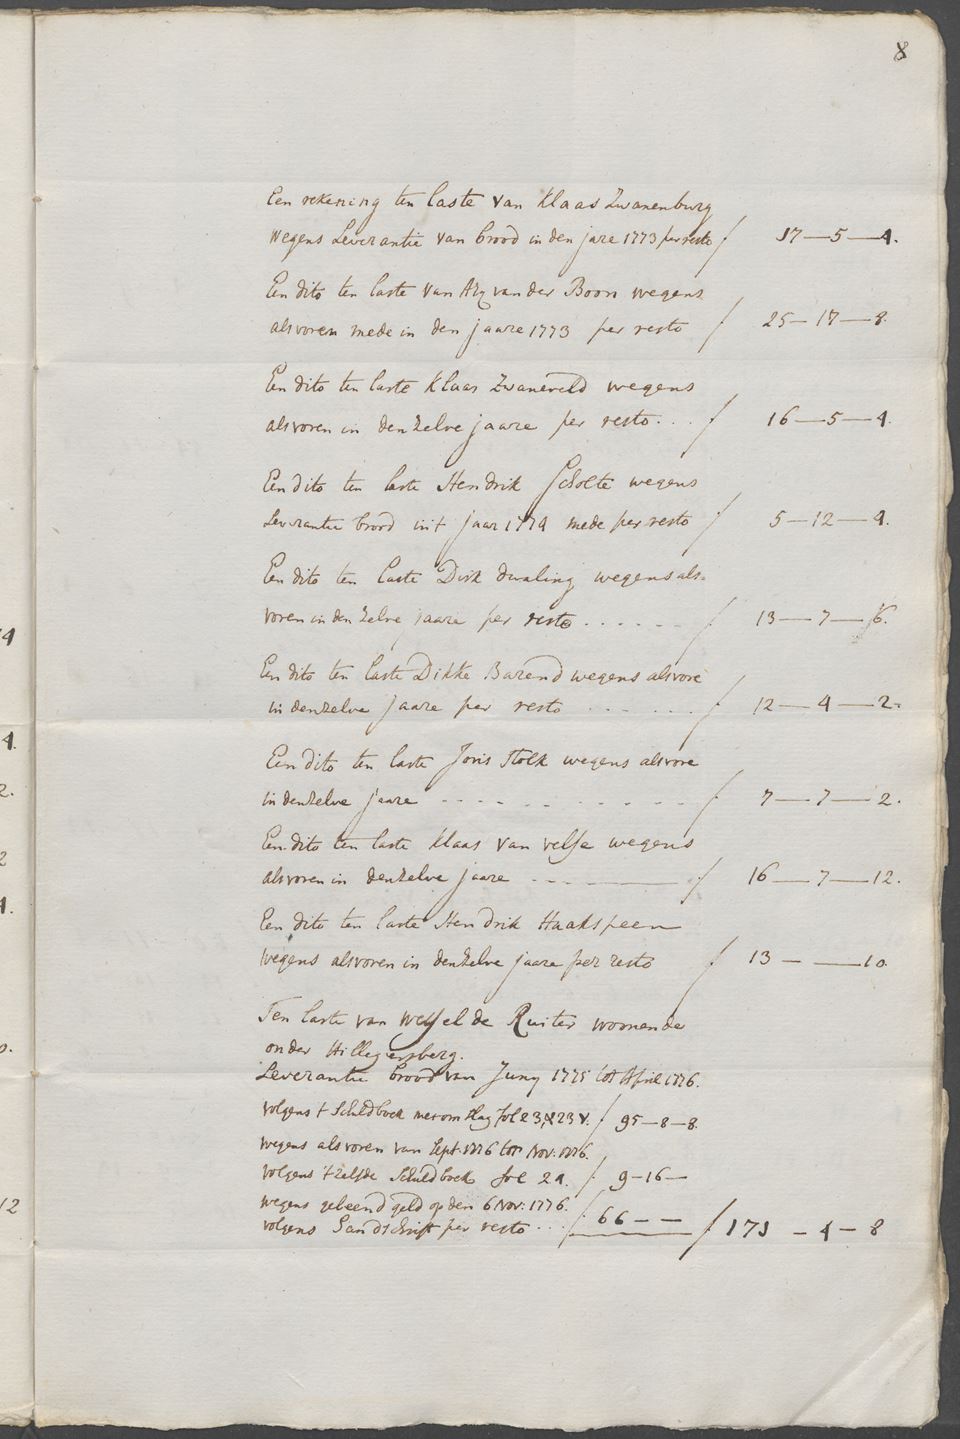 8
Een rekening ten laste van Klaas Zwanenburg
wegens Leverantie van brood in den jare 1773 per resto ƒ 17—5—4.
Een dito ten laste van Arij van der Boon wegens
alsvoren mede in den jaare 1773 per resto ƒ 25—17—8.
Een dito ten laste Klaas Zwaneveld wegens
alsvoren in denzelve jaare per resto... ƒ 16—5—4.
Een dito ten laste Hendrik Scholte wegens
Leverantie brood in 't jaar 1774 mede per resto ƒ 5—12—4.
Een dito ten laste Dirk dwaling wegens als-
voren in denzelve jaare per resto...... ƒ 13—7—6.
Een dito ten laste Dikke Barend wegens alsvore
in denzelve jaare per resto...... ƒ 12—4—2.
Een dito ten laste Joris Stolk wegens alsvore
in denzelve jaare ƒ 7—7—2.
Een dito ten laste Klaas van velse wegens
alsvoren in denzelve jaare ƒ 16—7—12.
Een dito ten laste Hendrik Haakspeen
wegens alsvoren in denzelve jaare per resto ƒ 13— —10
Ten laste van Wessel de Ruiter woonende
onder Hillegersberg.
Leverantie brood van Juny 1775 tot April 1776.
volgens 't Schuldboek met omslag fol 23, & 23 v. ƒ 95—8—8.
wegens alsvoren van Sept. 1776 tot Nov: 1776.
volgens 't zelfde Schuldboek fol 24. ƒ 9—16—
wegens geleend geld op den 6 Nov: 1776.
volgens handschrift per resto... ƒ 66—— ƒ 171—4—8
14
4.
2.
2
1.
0.
12